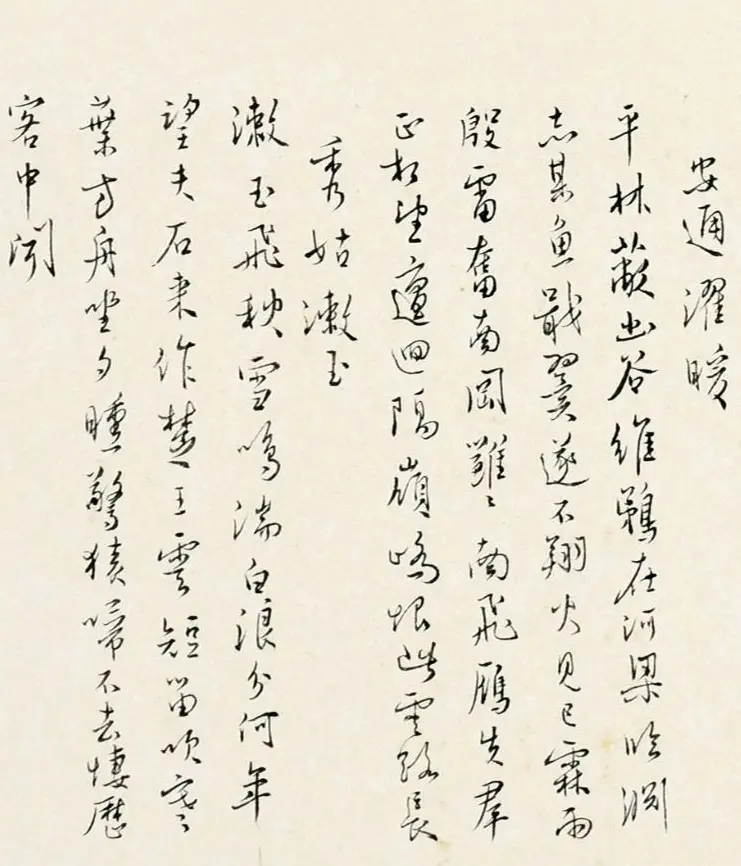 安通濯暖
平林蔽幽谷維鵜在河梁臨淵
志某魚戢翼遂不翔火見已霖雨
殷雷奮南岡雝〻南飛雁失群
正相望邅迴隔嶺鳴恨此雲路長
秀姑漱玉
漱玉飛秋雪鳴湍白浪分何年
望夫石來作楚王雲短笛吹寒
葉方舟坐夕曛驚猿啼不去悽歷
客中聞